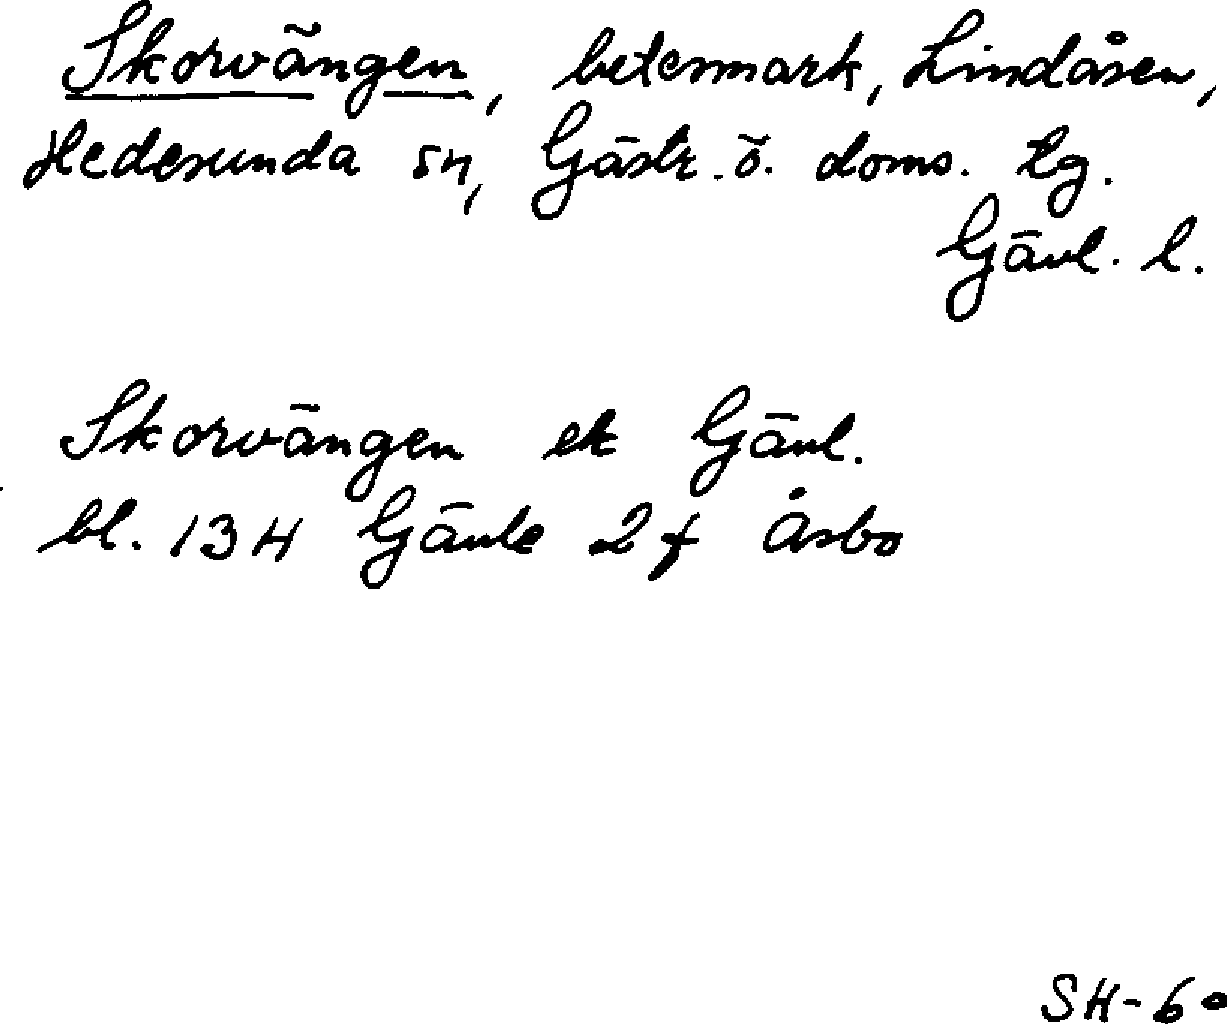 Skorvängen, betesmark, Lindåsen,
Hedesunda sn, Gästr. ö. doms. tg.
Gävl. l.
Skorvängen ek Gävl.
bl. 13H Gävle 2f Åsbo
SH-60